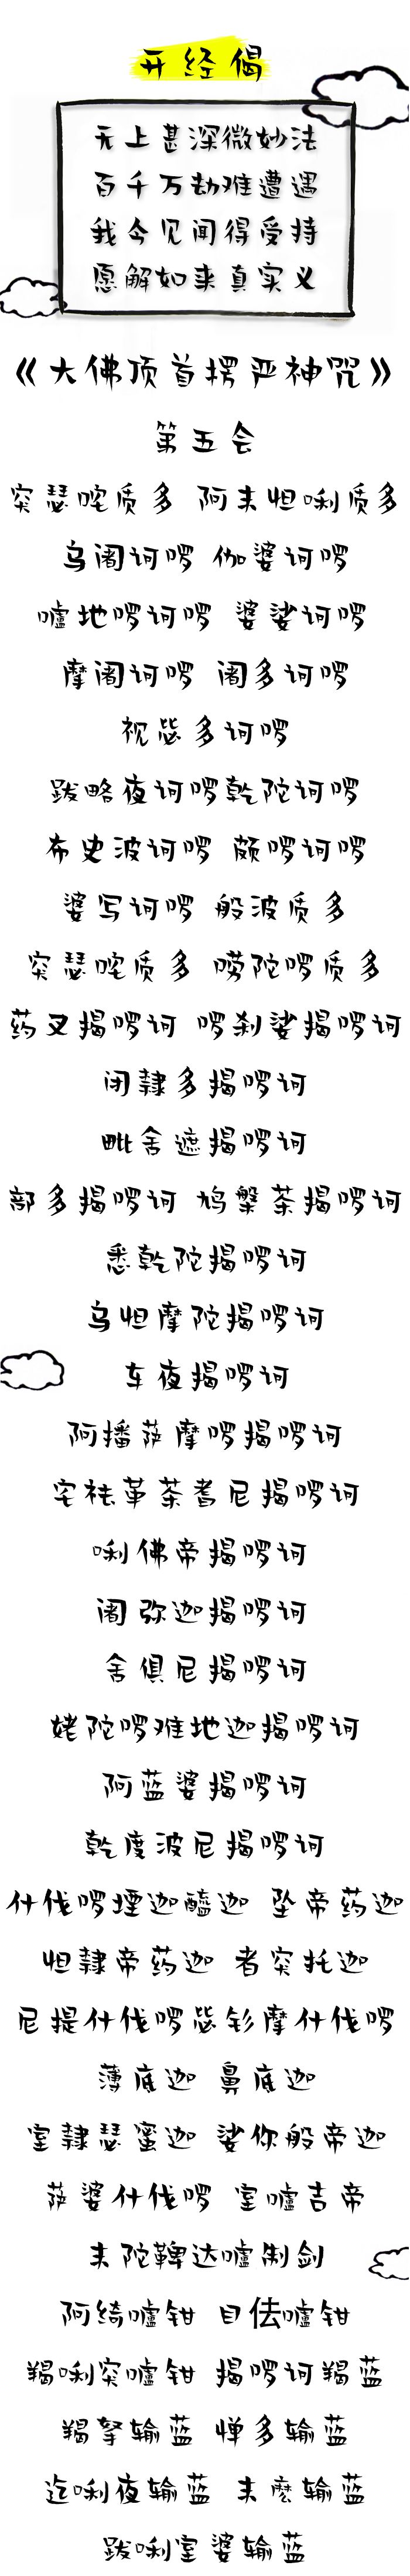 开经偈
无上甚深微妙法
百千万劫难遭遇
我今见闻得受持
愿解如来真实义
《大佛顶首楞严神咒》
第五会
突瑟咤质多 阿末怛唎质多
乌阇诃啰 伽婆诃啰
嚧地啰诃啰 婆娑诃啰
摩阇诃啰 阇多诃啰
视毖多诃啰
跋略夜诃啰乾陀诃啰
布史波诃啰 颇啰诃啰
婆写诃啰 般波质多
突瑟咤质多 唠陀啰质多
药叉揭啰诃 啰刹娑揭啰诃
闭隶多揭啰诃
毗舍遮揭啰诃
部多揭啰诃 鸠槃茶揭啰诃
悉乾陀揭啰诃
乌怛摩陀揭啰诃
车夜揭啰诃
阿播萨摩啰揭啰诃
宅祛革茶耆尼揭啰诃
唎佛帝揭啰诃
阇弥迦揭啰诃
舍俱尼揭啰诃
姥陀啰难地迦揭啰诃
阿蓝婆揭啰诃
乾度波尼揭啰诃
什伐啰堙迦醯迦 坠帝药迦
怛隶帝药迦 者突托迦
尼提什伐啰毖钐摩什伐啰
薄底迦 鼻底迦
室隶瑟蜜迦 娑你般帝迦
萨婆什伐啰 室嚧吉帝
末陀鞞达嚧制剑
阿绮嚧钳 目佉嚧钳
羯唎突嚧钳 揭啰诃羯蓝
羯拏输蓝 惮多输蓝
迄唎夜输蓝 末麽输蓝
跋唎室婆输蓝